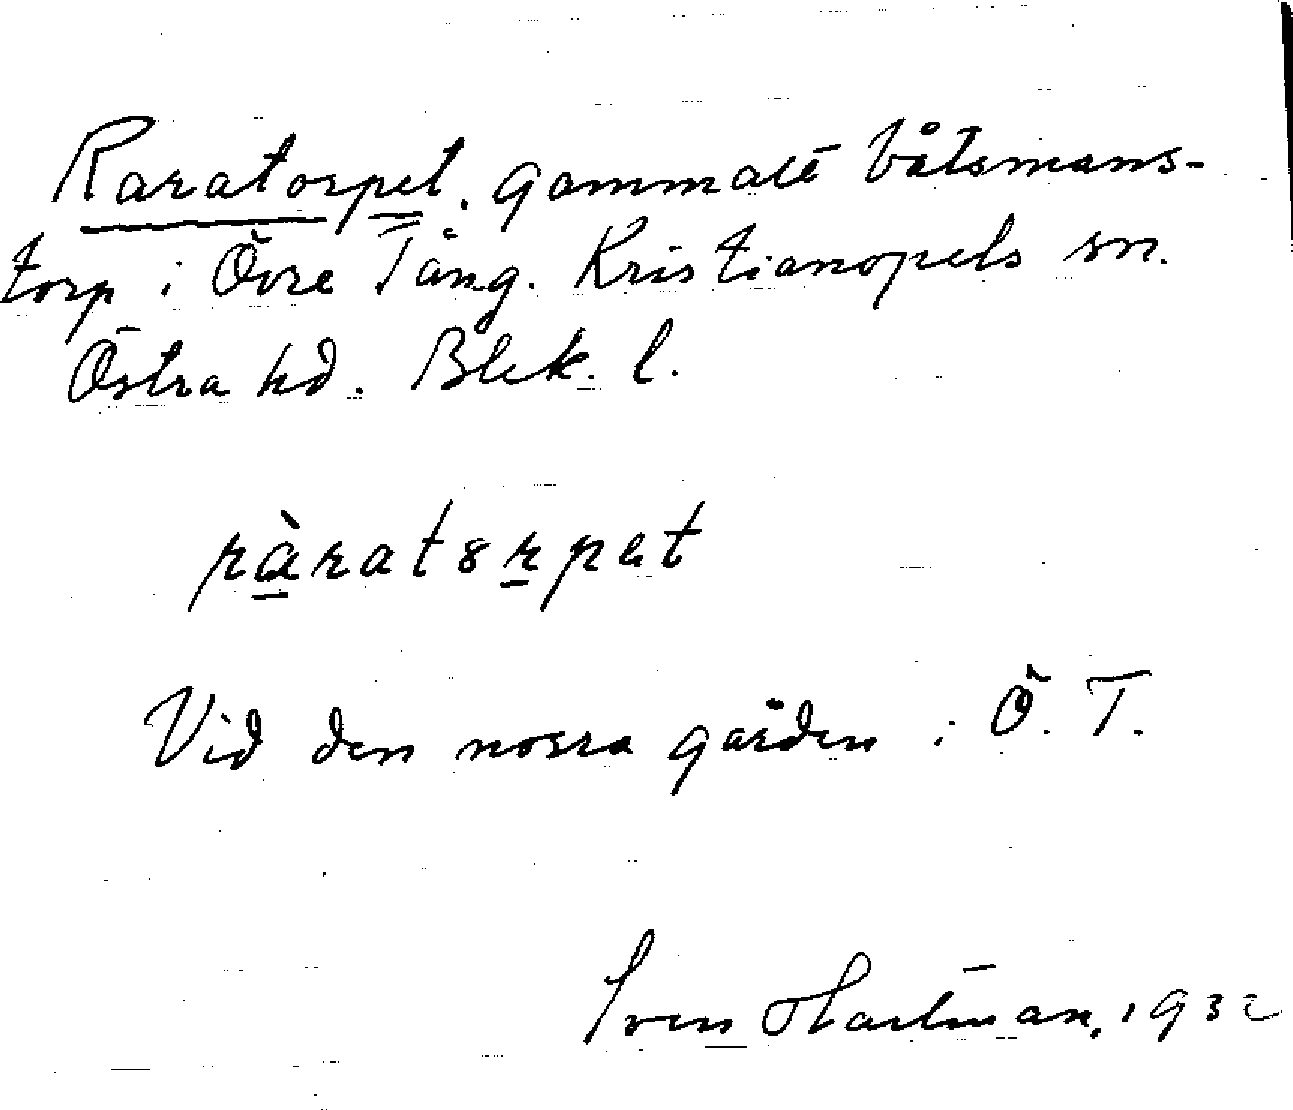 Raratorpet. gammalt båtsmans-
torp i Övre Tång. Kristianopels sn.
Östra hd. Blek. l.
ràratorpet
Vid den norra gården i Ö. T.
Sven Hartman, 1932